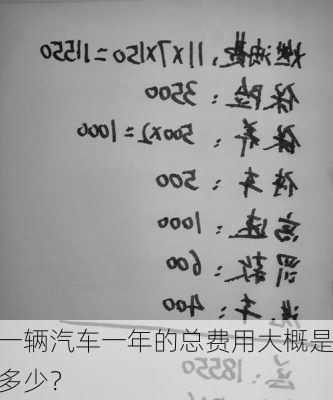 燃油费: 11×7×150=11550
保险: 3500
保养: 500×2=1000
停车: 500
高速: 1000
罚款: 600
洗车: 400
: 18550
一辆汽车一年的总费用大概是
多少?